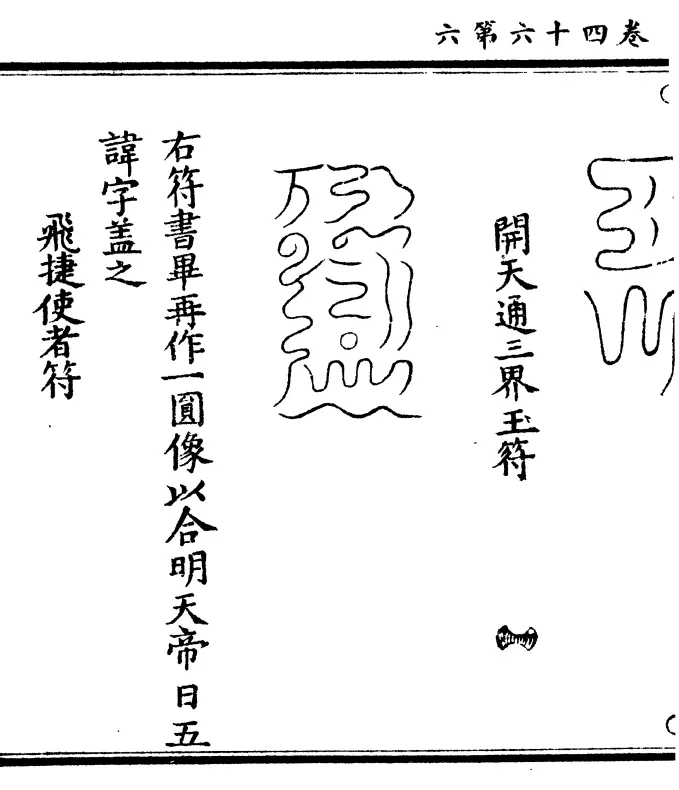 卷四十六第六
開天通三界玉符
右符書畢再作一圓像以合明天帝日五
諱字盖之
飛捷使者符